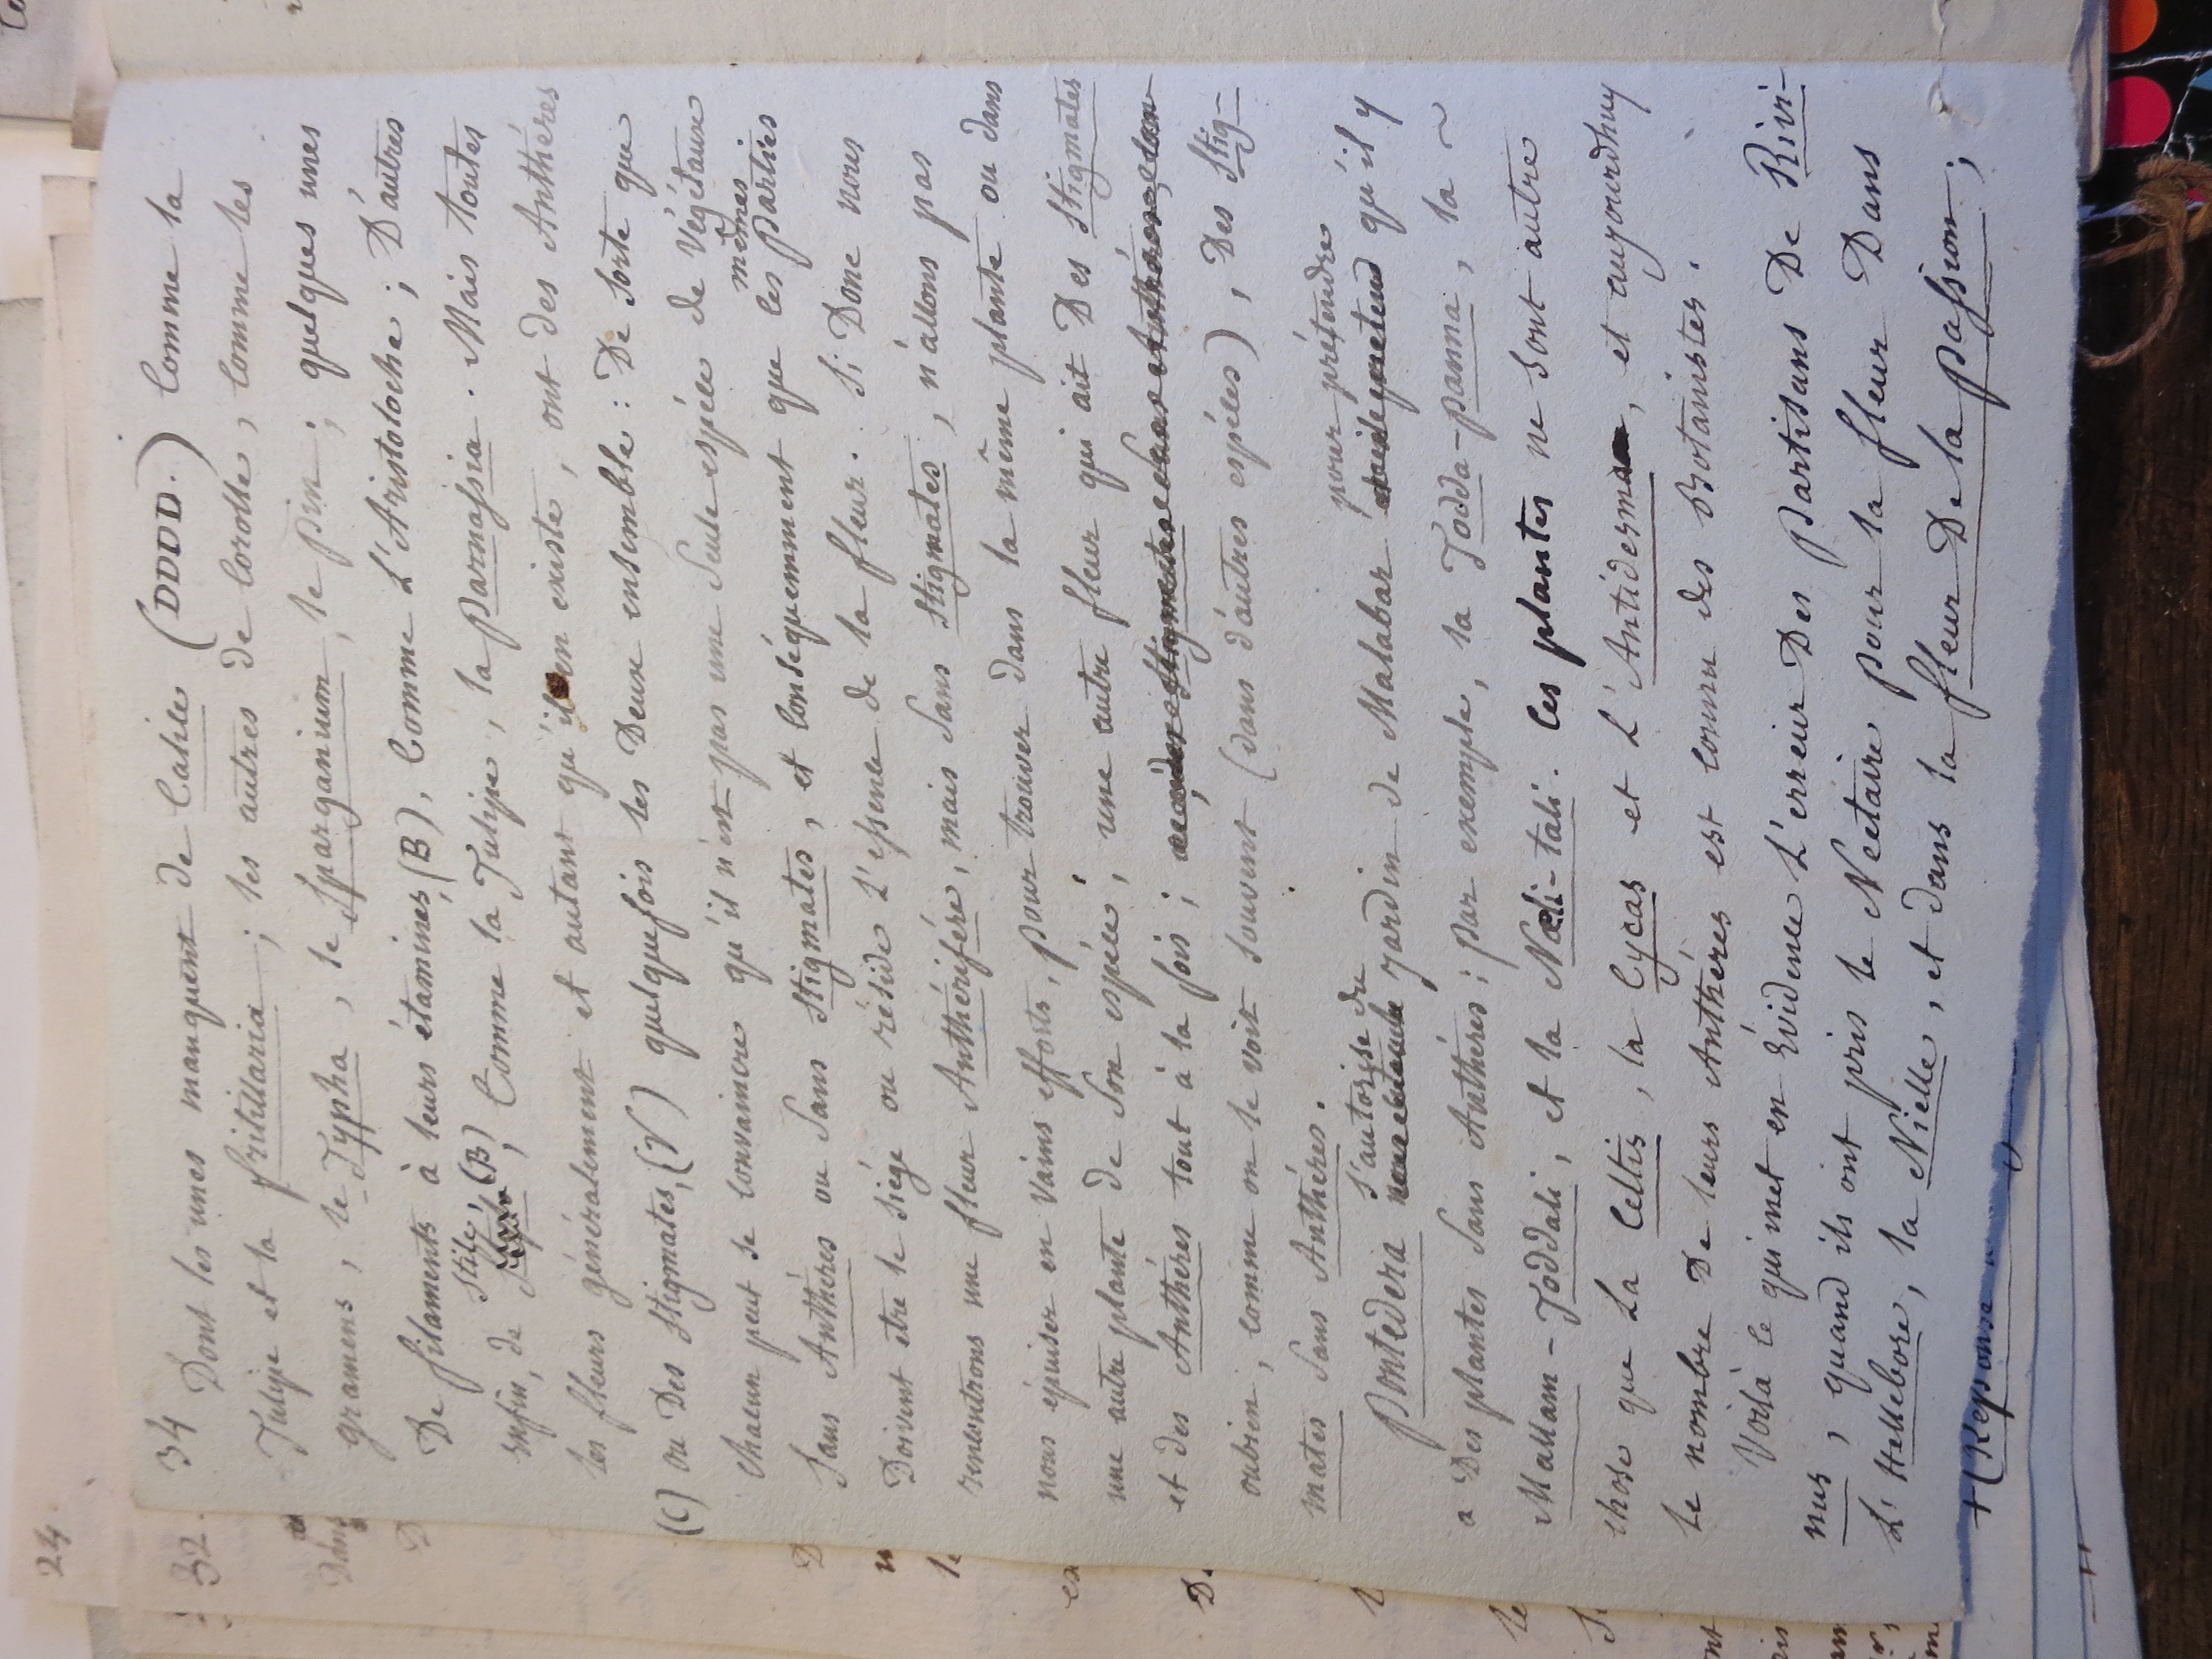 34 Dont les unes manquent de Calice (DDDD.) Comme la
Tulipe et la fritillaria; les autres de Corolle, comme les
gramens, le Typha, le Sparganium, le pin; quelques unes
De filaments à leurs étamines, (B), Comme L'Aristoloche; D'autres
enfin, de Stile, (B) Comme la Tulipe, la parnassia. Mais toutes
les fleurs généralement et autant qu'il en existe, ont des Anthéres
(C) ou Des Stigmates, (V) quelquefois les Deux ensemble: De sorte que
Chacun peut se convaincre qu'il n'est pas une Seule espéce de Végétaux
Sans Anthéres ou Sans Stigmates, et Conséquemment que les mêmes parties
Doivent etre le Siége ou réside L'essence de la fleur. Si Donc nous
rencontrons une fleur Anthérifére, mais Sans Stigmates, n'allons pas
nous épuiser en Vains efforts, pour trouver dans la même plante ou dans
une autre plante de Son espéce, une autre fleur qui ait Des Stigmates
et des Anthéres tout à la fois;
oubien, comme on le voit Souvent (dans d'autres espéces), Des Stig-
mates Sans Anthéres.
Pontedera s'autorise du jardin de Malabar pour prétendre qu'il y
a Des plantes Sans Anthéres; par exemple, la Todda-panna, la ~
Mallam-Toddali, et la Næli-tali. Ces plantes ne sont autre
chose que La Celtis, la Cycas et L'Antidesma, et aujourdhuy
le nombre De leurs Anthéres est Connu des Botanistes.
Voilà ce qui met en Evidence L'erreur Des partisans De Rivi-
nus, quand ils ont pris le Nectaire pour la fleur Dans
L'Hellebore, la Nielle, et dans la fleur De la passion;
+(Réponse
24.
32.